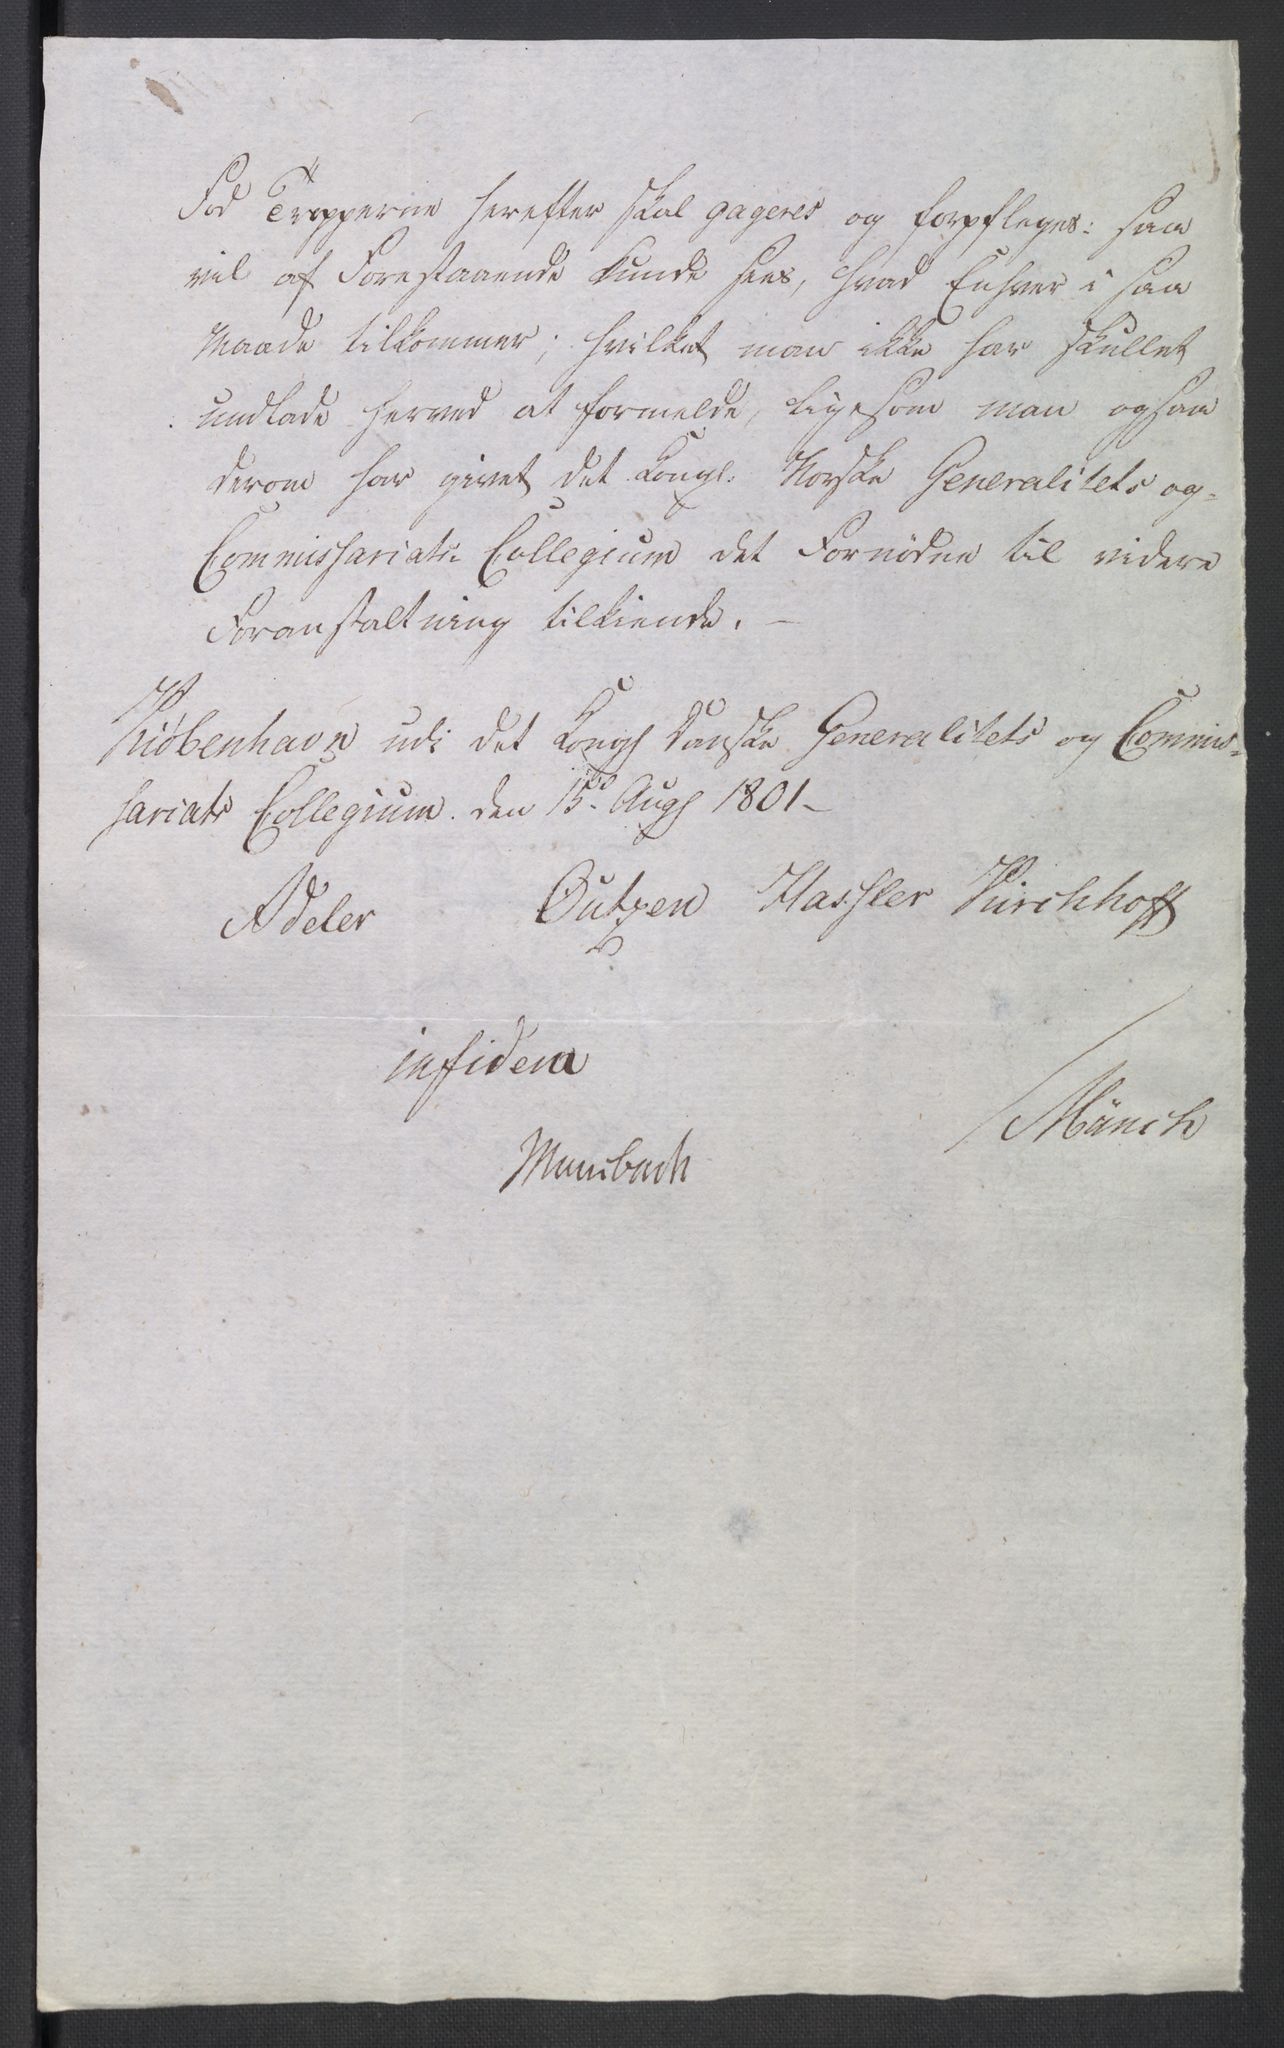 Fod Tropperne herefter skal gageres og forpfleges: saa
vil af Forestaaende kunde sees, hvad Enhver i saa
Maade tilkommer; hvilket man ikke har skullet
undlade herved at formelde, ligesom man ogsaa
derom har givet det Kongl. Norske Generalitets og-
Commissariats Collegium det Fornødne til videre
Foranstaltning tilkiende. –
Kiøbenhavn udi det Kongl Danske Generalitets og Commis-
sariats Collegium. den 15d Augs 1801–
Adeler Outzen Hassler Kirchhoff
in fidem
Münch
Mansbach